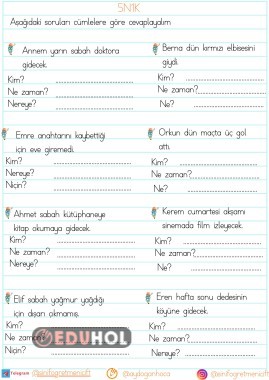 5N1K
Aşağıdaki soruları cümlelere göre cevaplayalım
Annem yarın sabah doktora
gidecek.
Kim?
Ne zaman?
Nereye?
Berna dün kırmızı elbisesini
giydi.
Kim?
Ne zaman?
Ne?
Emre anahtarını kaybettiği
için eve giremedi.
Kim?
Nereye?
Niçin?
Orkun dün maçta üç gol
attı.
Kim?
Ne zaman?
Ne?
Ahmet sabah kütüphaneye
kitap okumaya gidecek.
Kim?
Ne zaman?
Nereye?
Kerem cumartesi akşamı
sinemada film izleyecek.
Kim?
Ne zaman?
Nerede?
Elif sabah yağmur yağdığı
için dışarı çıkmamış.
Ne zaman?
Niçin?
EDUHOL
Eren hafta sonu dedesinin
köyüne gidecek.
Kim?
Ne zaman?
Nereye?
Telegram
@sinifogretmenisff
@aydoganhoca
@sinifogretmenisff